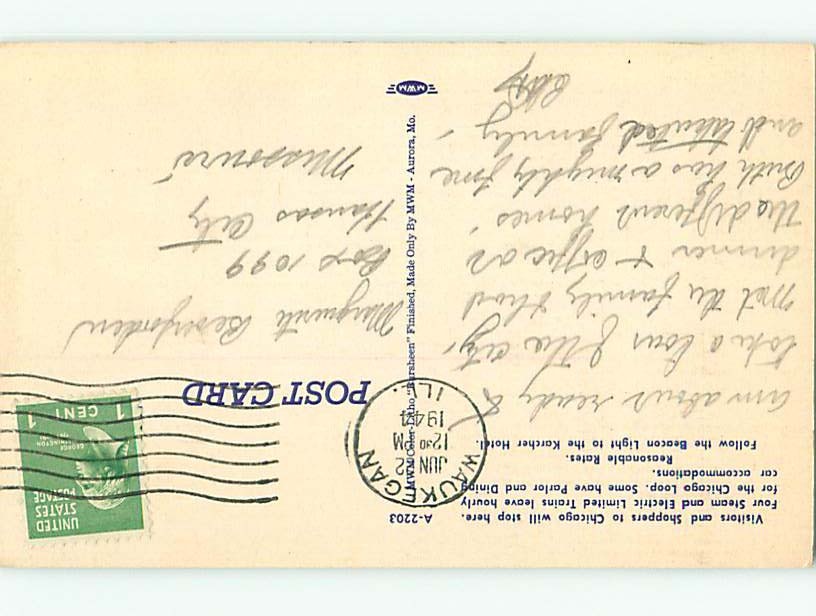 Visitors and Shoppers to Chicago will stop here.
Four Steam and Electric Limited Trains leave hourly
for the Chicago Loop. Some have Parlor and Dining
car accommodations.
Reasonable Rates.
Follow the Beacon Light to the Karcher Hotel.
am about ready to
take a tour of the city,
met the family & had
dinner + coffee at
the different homes.
Ruth has a mighty fine
and talented family.
A-2203
MWM Color-Litho "Plursheen" Finished, Made Only By MWM - Aurora, Mo.
MWM
WAUKEGAN
JUN 22
12 30 PM
1944
ILL.
UNITED
STATES
POSTAGE
GEORGE
WASHINGTON
1 CENT 1
POST CARD
Box 1099
Kansas City
Missouri